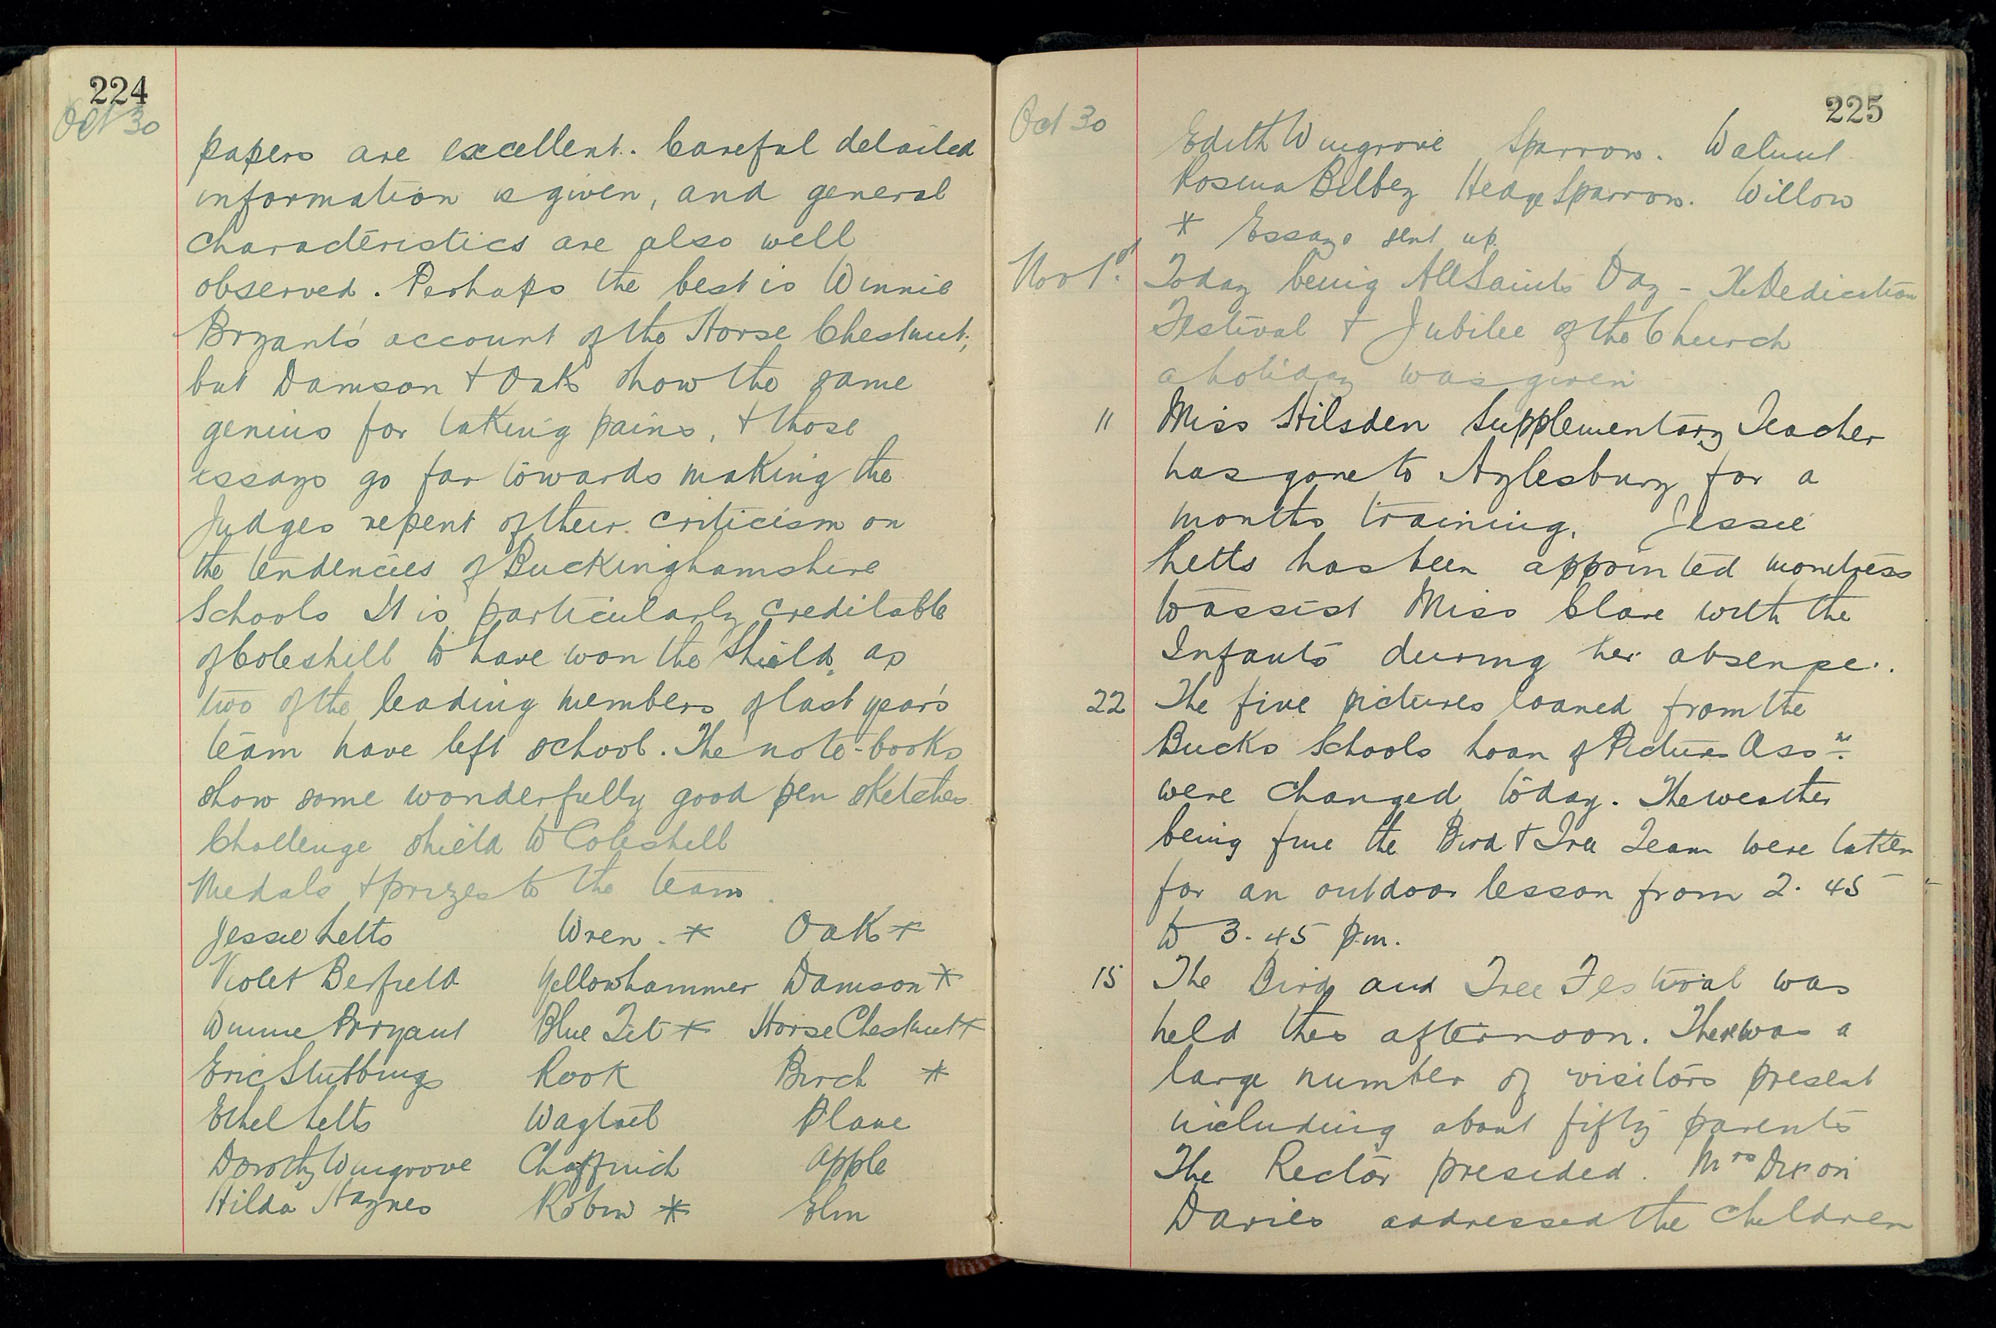 224
Oct 30
papers are excellent. Careful detailed
information is given, and general
characteristics are also well
observed. Perhaps the best is Winnie
Bryant's account of the Horse Chestnut;
but Damson & Oak show the same
genius for taking pains, & those
essays go far towards making the
Judges repent of their criticism on
the tendencies of Buckinghamshire
Schools It is particularly creditable
of Coleshill to have won the Shield, as
two of the leading members of last year's
team have left school. The note-books
show some wonderfully good pen sketches
Challenge Shield to Coleshill
Medals & prizes to the team.
Jessie Letts Wren. * Oak *
Violet Berfield Yellowhammer Damson *
Winnie Bryant Blue Tit * Horse Chestnut *
Eric Stubbings Rook Birch *
Ethel Letts Wagtail Plane
Dorothy Wingrove Chaffinch Apple
Hilda Haynes Robin * Elm
225
Oct 30
Edith Wingrove Sparrow. Walnut
Rosina Bilbey Hedge Sparrow. Willow
* Essays sent up
Nov 1st. Today being All Saints Day - The Dedication
Festival & Jubilee of the Church
a holiday was given
11 Miss Hilsden Supplementary Teacher
has gone to Aylesbury for a
months training. Jessie
Letts has been appointed monitress
to assist Miss Clare with the
Infants during her absence.
22 The five pictures loaned from the
Bucks Schools Loan of Picture Assn.
were changed today. The weather
being fine the Bird & Tree Team were taken
for an outdoor lesson from 2.45
to 3.45 p.m.
15 The Bird and Tree Festival was
held this afternoon. There was a
large number of visitors present
including about fifty parents
The Rector presided. Mrs Dixon
Davies addressed the children